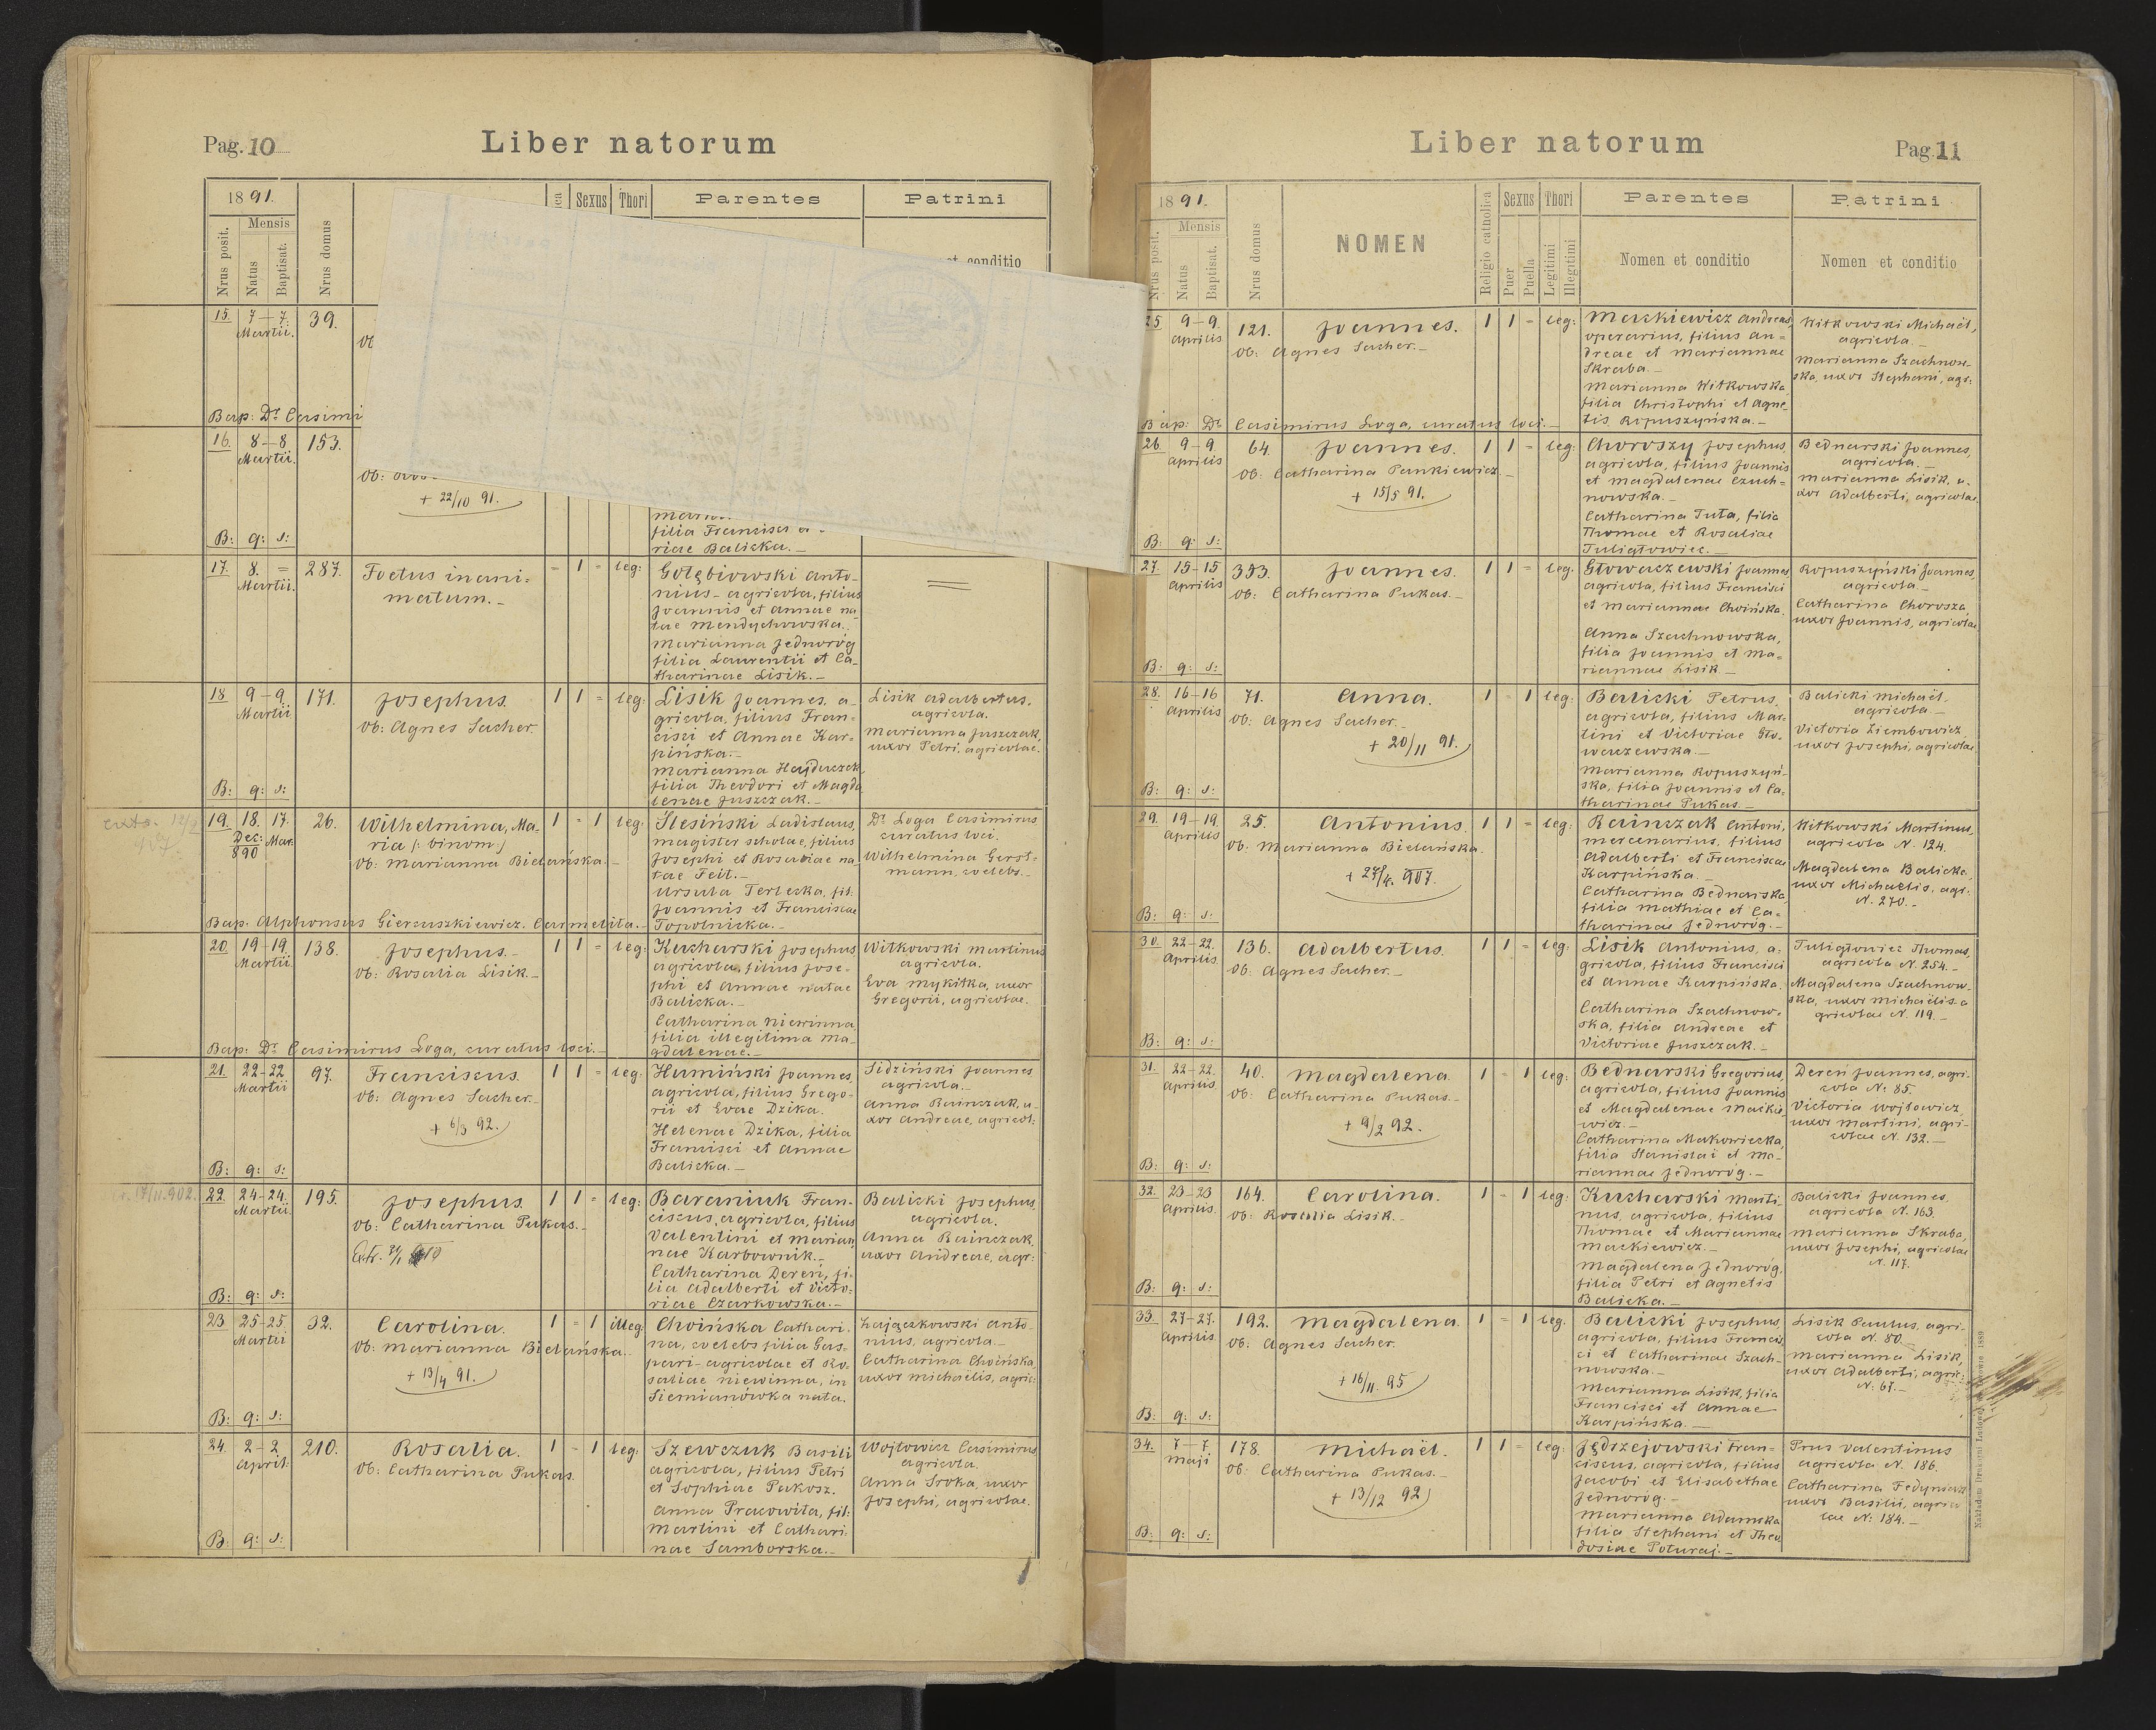 Pag. 10
Liber natorum
1891.
Sexus
Thori
Parentes
Patrini
Mensis
Nrus posit.
Natus
Baptisat.
Nrus domus
et conditio
15. 7-7. Martii. 39.
Bap: Dr. Casimi
16. 8-8 Martii. 153.
+ 22/10 91.
filia Francisci
riae Balicka.-
B: q: s:
17. 8. = Martii. 287.
Foetus inani-
matum.-
= 1 = leg:
Gołębiowski Anto-
nius- agricola, filius
Joannis et Annae na
tae Mendychowska.
Marianna Jednoróg
filia Laurentii et Ca-
tharinae Lisik.-
18 9-9. Martii 171.
Josephus
ob: Agnes Sacher.
1 1 = leg:
Lisik Joannes, a-
gricola, filius Fran-
cisci et Annae Kar-
pińska.-
Marianna Hajduczek
filia Theodori et Magda
lenae Juszczak.-
Lisik Adalbertus,
agricola.
Marianna Juszczak,
uxor Petri, agricolae.
B: q: s:
19. 18. Dec: 890 17. Mar. 26.
Wilhelmina, Ma-
ria (: binom.)
ob: Marianna Bielańska.-
1 = 1 leg:
Slesiński Ladislaus,
magister scholae, filius
Josephi et Rosaliae na-
tae Feil.-
Ursula Terlecka, fil:
Joannis et Franciscae
Topolnicka.-
Dr. Loga Casimirus
curatus loci.
Wilhelmina Gerst-
mann, coelebs.-
Bap. Alphonsus Giercuszkiewicz. Carmelita.-
20. 19-19 Martii. 138.
Josephus.-
ob: Rosalia Lisik.-
1 1 = leg:
Kucharski Josephus
agricola, filius Jose-
phi et Annae natae
Balicka.-
Catharina Niewinna,
filia illegitima Ma-
gdalenae.-
Witkowski Martinus
agricola.
Eva Mykitka, uxor
Gregorii, agricolae.
Bap: Dr. Casimirus Loga, curatus loci.-
21. 22-22 Martii 97.
Franciscus.
ob: Agnes Sacher.-
+ 6/3 92.
1 1 = leg:
Humiński Joannes,
agricola, filius Grego-
rii et Evae Dzika.
Helenae Dzika, filia
Francisci et Annae
Balicka.-
Sidziński Joannes
agricola.-
Anna Bainczak, u-
xor Andreae, agricol:
B: q: s:
22. 24-24. Martii 195.
Josephus
ob: Catharina Pukas.-
1 1 = leg:
Baraniuk Fran-
ciscus, agricola, filius
Valentini et Marian
nae Karbownik.-
Catharina Dereń, fi-
lia Adalberti et Victo-
riae Czarkowska.-
Balicki Josephus
agricola.
Anna Bainczak,
uxor Andreae, agr:
B: q: s:
23. 25-25. Martii 32.
Carolina.
ob: Marianna Bielańska.-
+ 13/4 91.
1 = 1 illeg.
Choińska Cathari-
na, coelebs filia Gas-
pari- agricolae et Ro-
saliae Niewinna, in
Siemianówka nata.
Zajączkowski Anto-
nius, agricola.-
Catharina Choińska,
uxor Michaelis, agric:
B: q: s:
24. 2-2. April: 210.
Rosalia.
ob: Catharina Pukas.
1 = 1 leg:
Szewczuk Basili
agricola, filius Petri
et Sophiae Pakosz.
Anna Pracowita, fil:
Martini et Cathari-
nae Samborska.-
Wojtowicz Casimirus
agricola.
Anna Sroka, uxor
Josephi, agricolae.
B: q: s:
Liber natorum
Pag. 11
1891.
Mensis
Nrus posit.
Natus
Baptisat.
Nrus domus
NOMEN
Religio catholica
Sexus
Puer
Puella
Thori
Legitimi
Illegitimi
Parentes
Nomen et conditio
Patrini
Nomen et conditio
25. 9-9. Aprilis 121.
Joannes.
ob: Agnes Sacher.-
1 1 = leg:
Mackiewicz Andreas,
operarius, filius An-
dreae et Mariannae
Skraba.-
Marianna Witkowska,
filia Christophi et Agne-
tis Ropuszyńska.-
Witkowski Michaël,
agricola.-
Marianna Szachnow-
ska, uxor Stephani, agr:
Bap: Dr. Casimirus Loga, curatus loci.-
26. 9-9. Aprilis 64.
Joannes.
ob: Catharina Pankiewicz.-
+ 15/5 91.
1 1 = leg:
Choroszy Josephus,
agricola, filius Joannis
et Magdalenae Czuch-
nowska.-
Catharina Tuta, filia
Thomae et Rosaliae
Tuligłowiec.-
Bednarski Joannes,
agricola.-
Marianna Lisik, u-
xor Adalberti, agricolae.
B: q: s:
27. 15-15 Aprilis 393.
Joannes.
ob: Catharina Pukas.-
1 1 = leg.
Głowaczewski Joannes
agricola, filius Francisci
et Mariannae Choińska.
Anna Szachnowska,
filia Joannis et Ma-
riannae Lisik.-
Ropuszyński Joannes,
agricola.-
Catharina Chorosza,
uxor Joannis, agricolae.
B: q: s:
28. 16-16 Aprilis 71.
Anna.
ob: Agnes Sacher.-
+ 20/11 91.
1 = 1 leg:
Balicki Petrus,
agricola, filius Mar-
tini et Victoriae Gło-
waczewska.-
Marianna Ropuszyń-
ska, filia Joannis et Ca-
tharinae Pukas.-
Balicki Michaël,
agricola.-
Victoria Ziembowicz
uxor Josephi, agricolae.
B: q: s:
29. 19-19. Aprilis 25.
Antonius.
ob: Marianna Bielańska.
1 1 = leg:
Bainczak Antoni,
mercenarius, filius
Adalberti et Franciscae
Karpińska.-
Catharina Bednarska,
filia Mathiae et Ca-
tharinae Jednoróg.-
Witkowski Martinus,
agricola N. 124.
Magdalena Balicka,
uxor Michaelis, agr:
N. 270.-
B: q: s:
30. 22-22. Aprilis. 136.
Adalbertus.
ob: Agnes Sacher.-
1 1 = leg:
Lisik Antonius, a-
gricola, filius Francisci
et Annae Karpińska.
Catharina Szachnow-
ska, filia Andreae et
Victoriae Juszczak.-
Tuligłowiec Thomas,
agricola N. 254.-
Magdalena Szachnow-
ska, uxor Michaëlis a
gricolae N. 119.-
B: q: s:
31. 22-22. Aprilis 40.
Magdalena
ob: Catharina Pukas.-
+ 9/2 92.
1 = 1 leg:
Bednarski Gregorius,
agricola, filius Joannis
et Magdalenae Mackie-
wicz.-
Catharina Makowiecka,
filia Stanislai et Ma-
riannae Jednoróg.-
Dereń Joannes, agri-
cola N: 85.
Victoria Wojtowicz,
uxor Martini, agri-
colae N. 132.-
B: q: s:
32. 23-23 Aprilis. 164.
Carolina.
ob: Rosalia Lisik.-
1 = 1 leg:
Kucharski Marti-
nus, agricola, filius
Thomae et Mariannae
Mackiewicz.-
Magdalena Jednoróg,
filia Petri et Agnetis
Balicka.-
Balicki Joannes,
agricola N. 163.
Marianna Skraba,
uxor Josephi, agricolae
N. 117.
B: q: s:
33. 27-27. Aprilis 192.
Magdalena.
ob: Agnes Sacher.
+ 16/11. 95
1 = 1 leg.
Balicki Josephus,
agricola, filius Francis-
ci et Catharinae Szach-
nowska.-
Marianna Lisik, filia
Francisci et Annae
Karpińska.-
Lisik Paulus, agri-
cola N. 80.-
Marianna Lisik,
uxor Adalberti, agric:
N. 67.-
B: q: s:
34. 7-7 Maji 178.
Michaël.
ob: Catharina Pukas.-
+ 13/12 92
1 1 = leg:
Jędrzejowski Fran-
ciscus, agricola, filius
Jacobi et Elisabethae
Jednoróg.-
Marianna Adamska
filia Stephani et Theo
dosiae Poturaj.-
Prus Valentinus
agricola N. 186.
Catharina Fedyniak
uxor Basilii, agrico
lae N: 184.-
B: q: s: